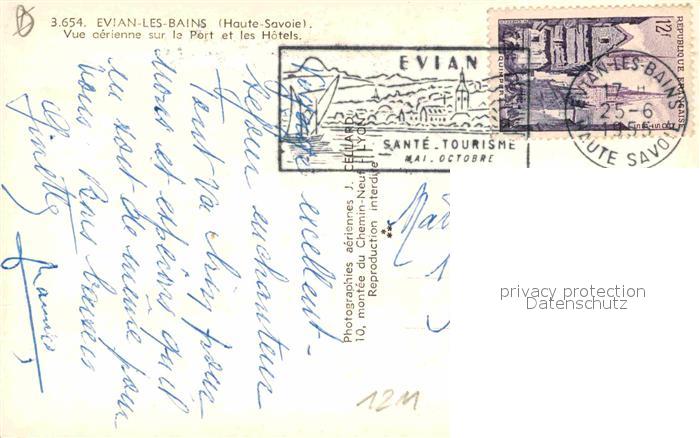 3.654. EVIAN-LES-BAINS (Haute-Savoie).
Vue aérienne sur le Port et les Hôtels.
Voyage excellent -
séjour enchanteur
Tout va bien pour
nous et espérons qu'il
en soit de même pour
vous. Bons baisers
Ginette
EVIAN
SANTÉ - TOURISME
MAI . OCTOBRE
12F
REPUBLIQUE FRANÇAISE
QUIMPER
EVIAN-LES-BAINS
17
25-6
HAUTE SAVOIE
Photographies aériennes J. CELLARD
10, montée du Chemin-Neuf - LYON
Reproduction interdite
**
privacy protection
Datenschutz
1211